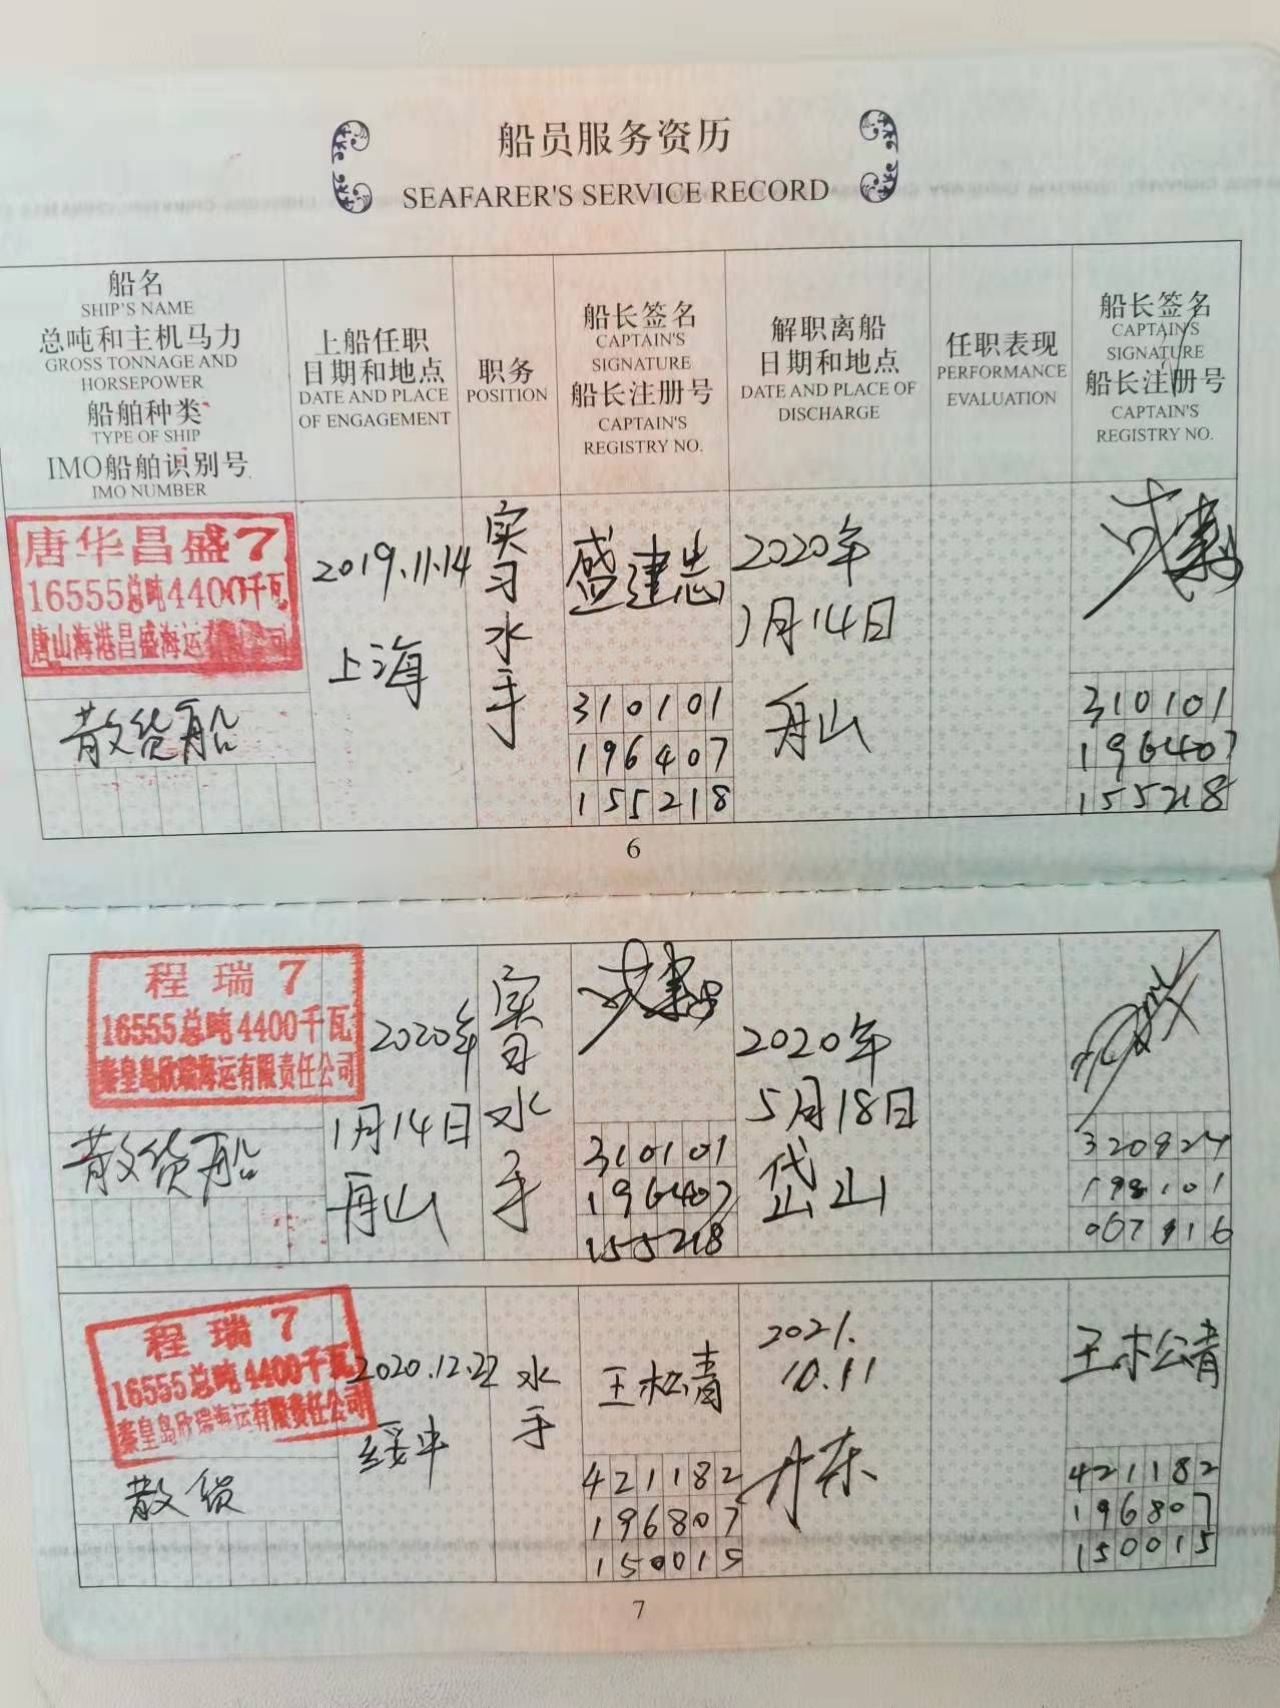 船员服务资历
SEAFARER'S SERVICE RECORD
船名
SHIP'S NAME
总吨和主机马力
GROSS TONNAGE AND
HORSEPOWER
船舶种类
TYPE OF SHIP
IMO船舶识别号
IMO NUMBER
上船任职
日期和地点
DATE AND PLACE
OF ENGAGEMENT
职务
POSITION
船长签名
CAPTAIN'S
SIGNATURE
船长注册号
CAPTAIN'S
REGISTRY NO.
解职离船
日期和地点
DATE AND PLACE OF
DISCHARGE
任职表现
PERFORMANCE
EVALUATION
船长签名
CAPTAIN'S
SIGNATURE
船长注册号
CAPTAIN'S
REGISTRY NO.
唐华昌盛7
16555总吨4400千瓦
唐山海港昌盛海运有限公司
散货船
2019.11.14
上海
实习水手
盛建志
310101
196407
155218
2020年
1月14日
舟山
310101
196407
155218
6
程瑞7
16555总吨4400千瓦
秦皇岛欣瑞海运有限责任公司
散货船
2020年
1月14日
舟山
实习水手
310101
196407
155218
2020年
5月18日
岱山
7
程瑞7
16555总吨4400千瓦
秦皇岛欣瑞海运有限责任公司
散货
2020.12.22
绥中
水手
王松青
421182
196807
150015
2021.
10.11
丹东
王松青
421182
196807
150015